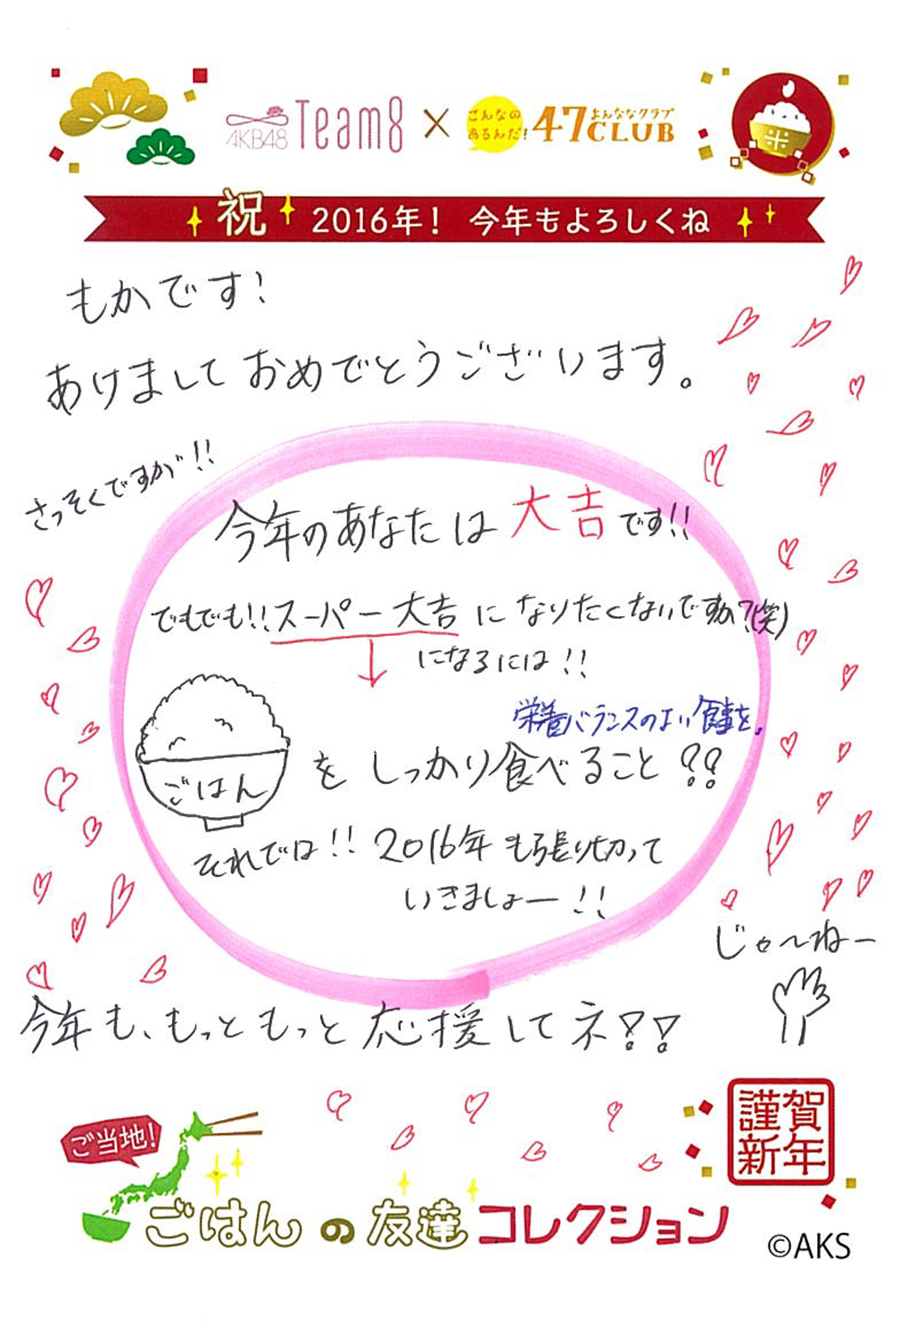 AKB48 Team8 × こんなの よんななクラブ
あるんだ! 47CLUB
米
祝 2016年! 今年もよろしくね
もかです!
あけましておめでとうございます。
さっそくですが!!
今年のあなたは大吉です!!
でもでも!!スーパー大吉になりたくないですか?(笑)
になるには!!
栄養バランスのよい食事を。
ごはん をしっかり食べること??
それでは!!2016年も張り切って
いきましょー!!
じゃ〜ねー
今年も、もっともっと応援してネ!!
謹賀
新年
ご当地!
ごはんの友達コレクション
©AKS